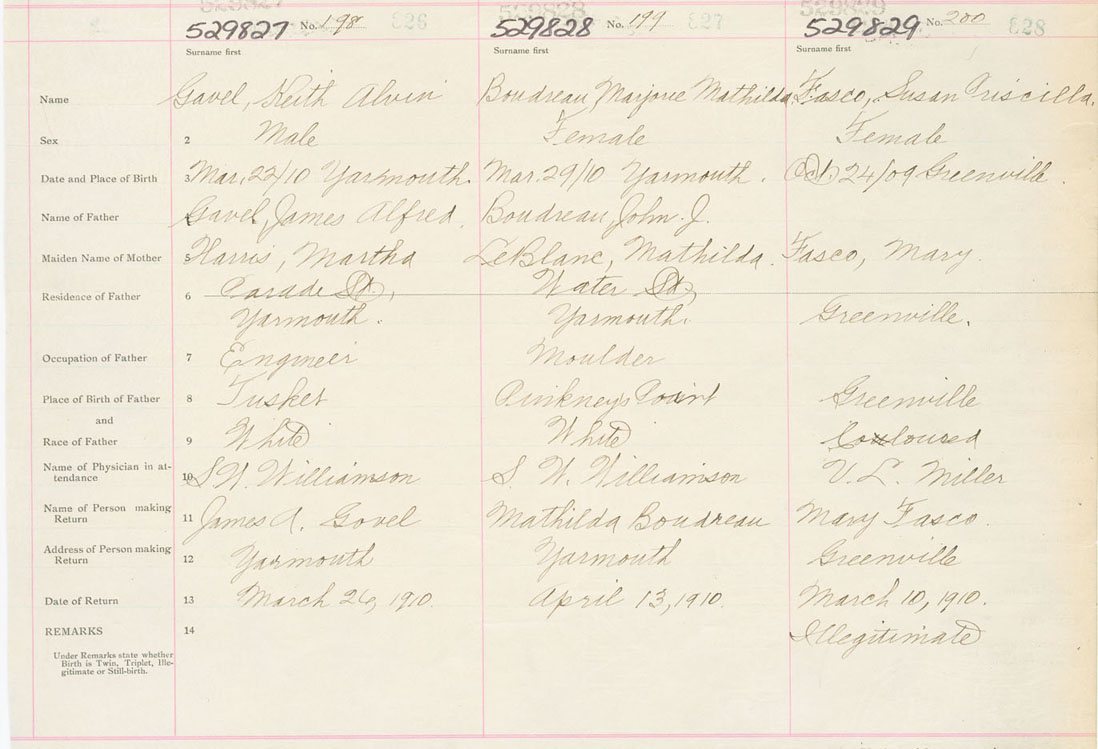 529827 No. 198 826 529828 No. 199 827 529829 No. 200 828
Surname first Surname first Surname first
Name Gavel, Keith Alvin Boudreau, Marjorie Mathilda Fasco, Susan Priscilla.
Sex 2 Male Female Female
Date and Place of Birth 3 Mar. 22/10 Yarmouth. Mar. 29/10 Yarmouth. Oct. 24/09 Greenville.
Name of Father Gavel, James Alfred. Boudreau, John J.
Maiden Name of Mother 5 Harris, Martha LeBlanc, Mathilda. Fasco, Mary.
Residence of Father 6 Parade St., Water St.,
Yarmouth. Yarmouth. Greenville.
Occupation of Father 7 Engineer Moulder
Place of Birth of Father 8 Tusket Pinkneys Point Greenville
and
Race of Father 9 White White Couloured
Name of Physician in at-
tendance 10 S. W. Williamson S. W. Williamson V. L. Miller
Name of Person making
Return 11 James A. Govel Mathilda Boudreau Mary Fasco.
Address of Person making
Return 12 Yarmouth Yarmouth Greenville
Date of Return 13 March 26, 1910. April 13, 1910. March 10, 1910.
REMARKS 14 Illegitimate
Under Remarks state whether
Birth is Twin, Triplet, Ille-
gitimate or Still-birth.